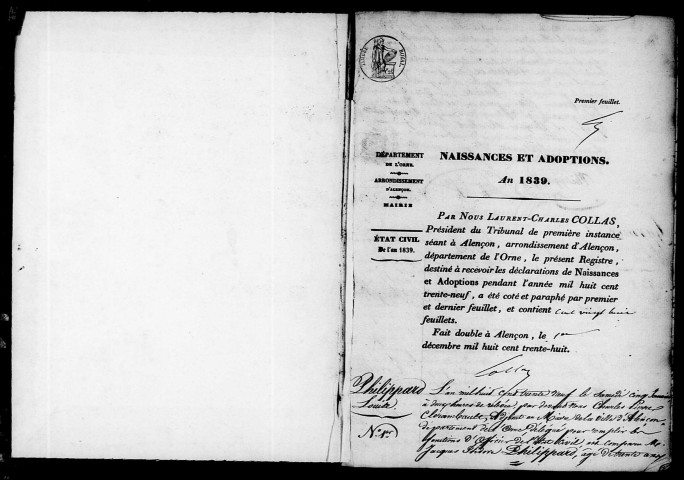 TIMBRE ROYAL
Premier feuillet.
DÉPARTEMENT
DE L'ORNE.
ARRONDISSEMENT
D'ALENÇON.
MAIRIE
ÉTAT CIVIL
De l'an 1839.
NAISSANCES ET ADOPTIONS.
An 1839.
PAR NOUS LAURENT-CHARLES COLLAS,
Président du Tribunal de première instance
séant à Alençon, arrondissement d'Alençon,
département de l'Orne, le présent Registre,
destiné à recevoir les déclarations de Naissances
et Adoptions pendant l'année mil huit cent
trente-neuf, a été coté et paraphé par premier
et dernier feuillet, et contient cent vingt
feuillets.
Fait double à Alençon, le 1er
décembre mil huit cent trente-huit.
Collas
Philippard
Louise
N° 1er
L'an mil huit cent trente neuf le samedi cinq Janvier
à onze heures de par devant nous Charles Pierre
adjoint au Maire de la Ville d'Alençon
département de l'Orne délégué pour remplir les
fonctions d'officier de l'état civil, est comparu Mr
Jacques Pierre Philippard, âgé de trente